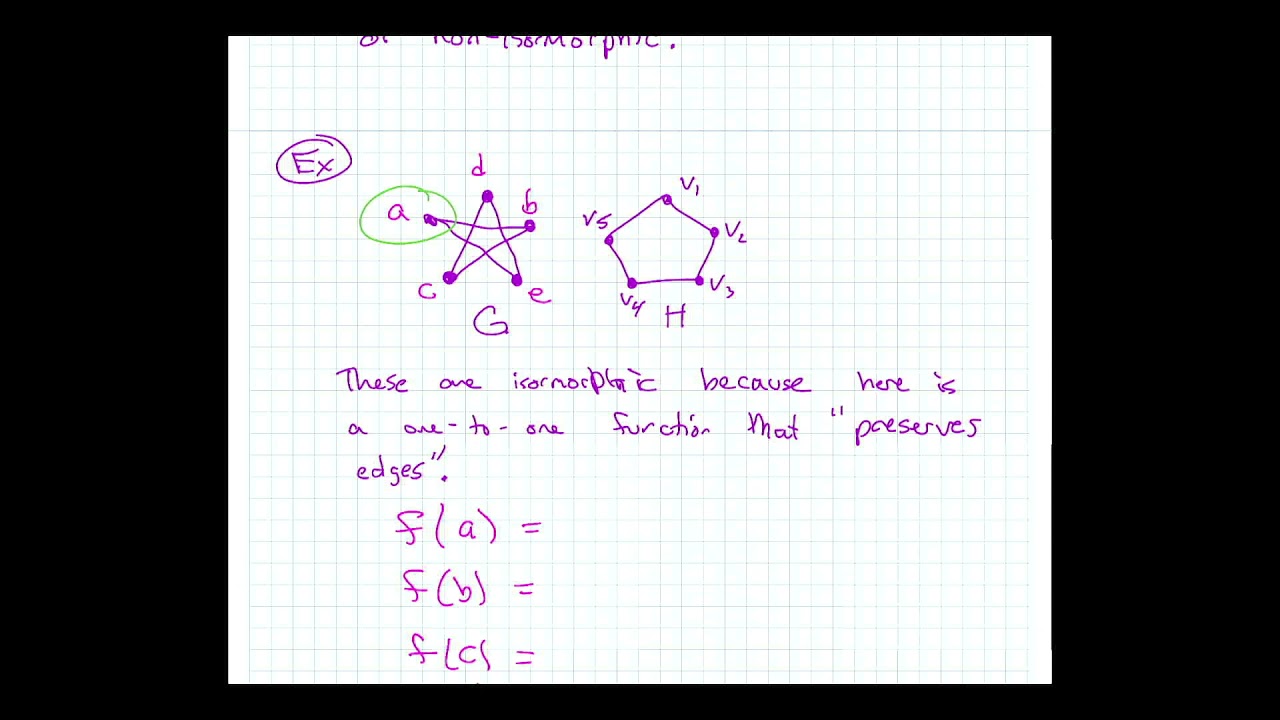 or non-isormorphic.
Ex
d
a
b
c
e
G
V1
V5
V2
V3
V4
H
These are isormorphic because here is
a one-to-one function that "preserves
edges".
f(a) =
f(b) =
f(c) =